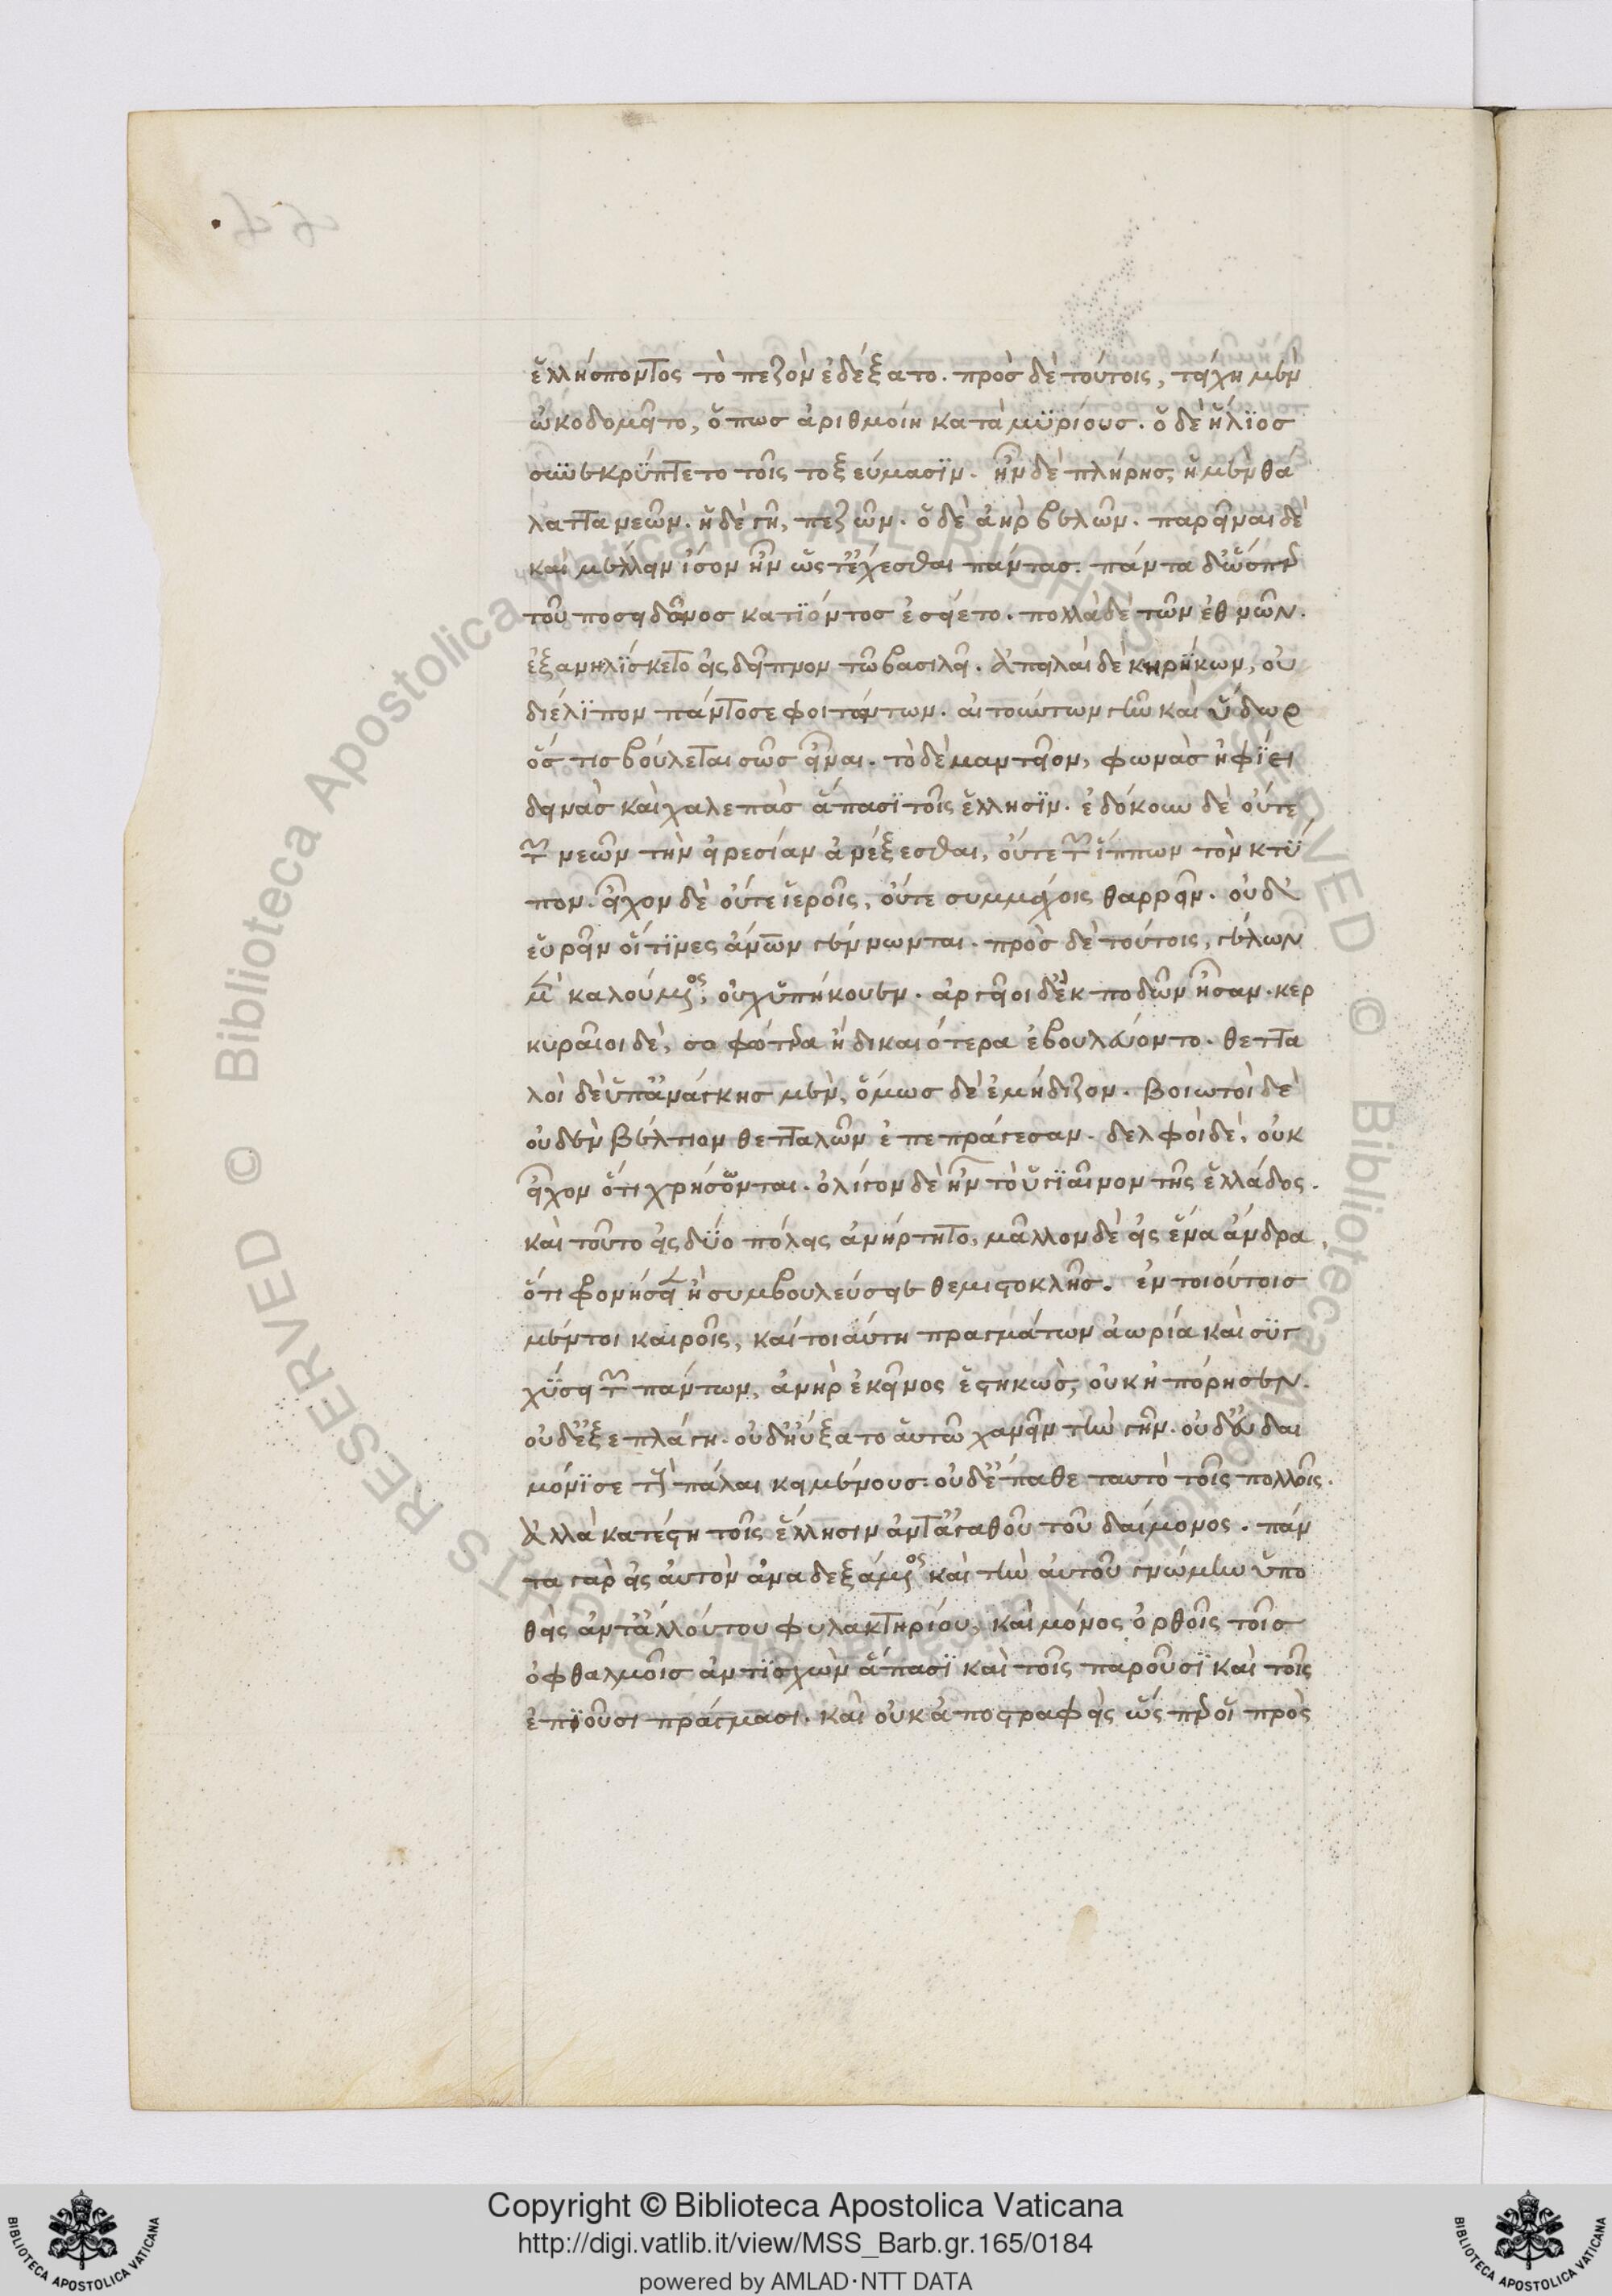 ἑλλήσποντος τὸ πεζὸν ἐδέξατο. πρὸς δὲ τούτοις, τείχη μὲν
ὠκοδομεῖτο, ὅπως ἀριθμοίη κατὰ μυρίους. ὁ δὲ ἥλιος
συνεκρύπτετο τοῖς τοξεύμασιν. ἦν δὲ πλήρης, ἡ μὲν θά
λαττα νεῶν. ἡ δὲ γῆ, πεζῶν. ὁ δὲ ἀὴρ βελῶν. παρεῖναι δὲ
καὶ μέλλειν ἴσον ἦν ὥς τ' ἔχεσθαι πάντας. πάντα δ' ὥσπερ
τοῦ ποσειδῶνος κατιόντος ἐσείετο. πολλὰ δὲ τῶν ἐθνῶν.
ἐξανηλίσκετο εἰς δεῖπνον τῶ βασιλεῖ. ἀπειλαὶ δὲ κηρύκων, οὐ
διέλιπον πάντοσε φοιτώντων. αἰτούντων γῆν καὶ ὕδωρ
ὅς τις βούλεται σῶς εἶναι. τὸ δὲ μαντεῖον, φωνὰς ἠφίει
δεινὰς καὶ χαλεπὰς ἅπασι τοῖς ἕλλησιν. ἐδόκουν δὲ οὔτε
τῶν νεῶν τὴν εἰρεσίαν ἀνέξεσθαι, οὔτε τῶν ἵππων τὸν κτύ
πον. εἶχον δὲ οὔτε ἱεροῖς, οὔτε συμμάχοις θαρρεῖν. οὐδ'
εὑρεῖν οἵτινες ἀνθρώπων γένωνται. πρὸς δὲ τούτοις, γέλων
μὲν καλούμενος, οὐχ ὑπήκουεν. ἀργεῖοι δ' ἐκποδὼν ἦσαν. κερ
κυραῖοι δὲ, σοφώτερα ἢ δικαιότερα ἐβουλεύοντο. θεττα
λοὶ δὲ ὑπ' ἀνάγκης μὲν, ὅμως δὲ ἐμήδιζον. βοιωτοὶ δὲ
οὐδὲν βέλτιον θετταλῶν ἐπεπράγεσαν. δελφοὶ δὲ, οὐκ
εἶχον ὅτι χρήσονται. ὀλίγον δὲ ἦν τὸ ὑγιαῖνον τῆς ἑλλάδος.
καὶ τοῦτο εἰς δύο πόλεις ἀνήρτητο, μᾶλλον δὲ εἰς ἕνα ἄνδρα,
ὅτι φρονήσειε ἢ συμβουλεύσειε θεμιστοκλῆς. ἐν τοιούτοις
μέντοι καιροῖς, καὶ τοιαύτη πραγμάτων ἀωρία καὶ συγ
χύσει τῶν πάντων, ἀνὴρ ἐκεῖνος ἑστηκὼς, οὐκ ἠπόρησεν.
οὐδ' ἐξεπλάγη. οὐδ' ηὔξατο αὑτῶ χανεῖν τὴν γῆν. οὐδ' εὐδαι
μόνισε τοὺς πάλαι κειμένους. οὐδ' ἔπαθε ταυτὸ τοῖς πολλοῖς.
ἀλλὰ κατέστη τοῖς ἕλλησιν ἀντ' ἀγαθοῦ τοῦ δαίμονος. πάν
τα γὰρ εἰς αὑτὸν ἀναδεξάμενος καὶ τὴν αὑτοῦ γνώμην ὑπο
θεὶς ἀντ' ἄλλου του φυλακτηρίου, καὶ μόνος ὀρθοῖς τοῖς
ὀφθαλμοῖς ἀντισχὼν ἅπασι καὶ τοῖς παροῦσι καὶ τοῖς
ἐπιοῦσι πράγμασι. καὶ οὐκ ἀποστραφεὶς ὥσπερ οἱ πρὸς
Copyright © Biblioteca Apostolica Vaticana
http://digi.vatlib.it/view/MSS_Barb.gr.165/0184
powered by AMLAD·NTT DATA